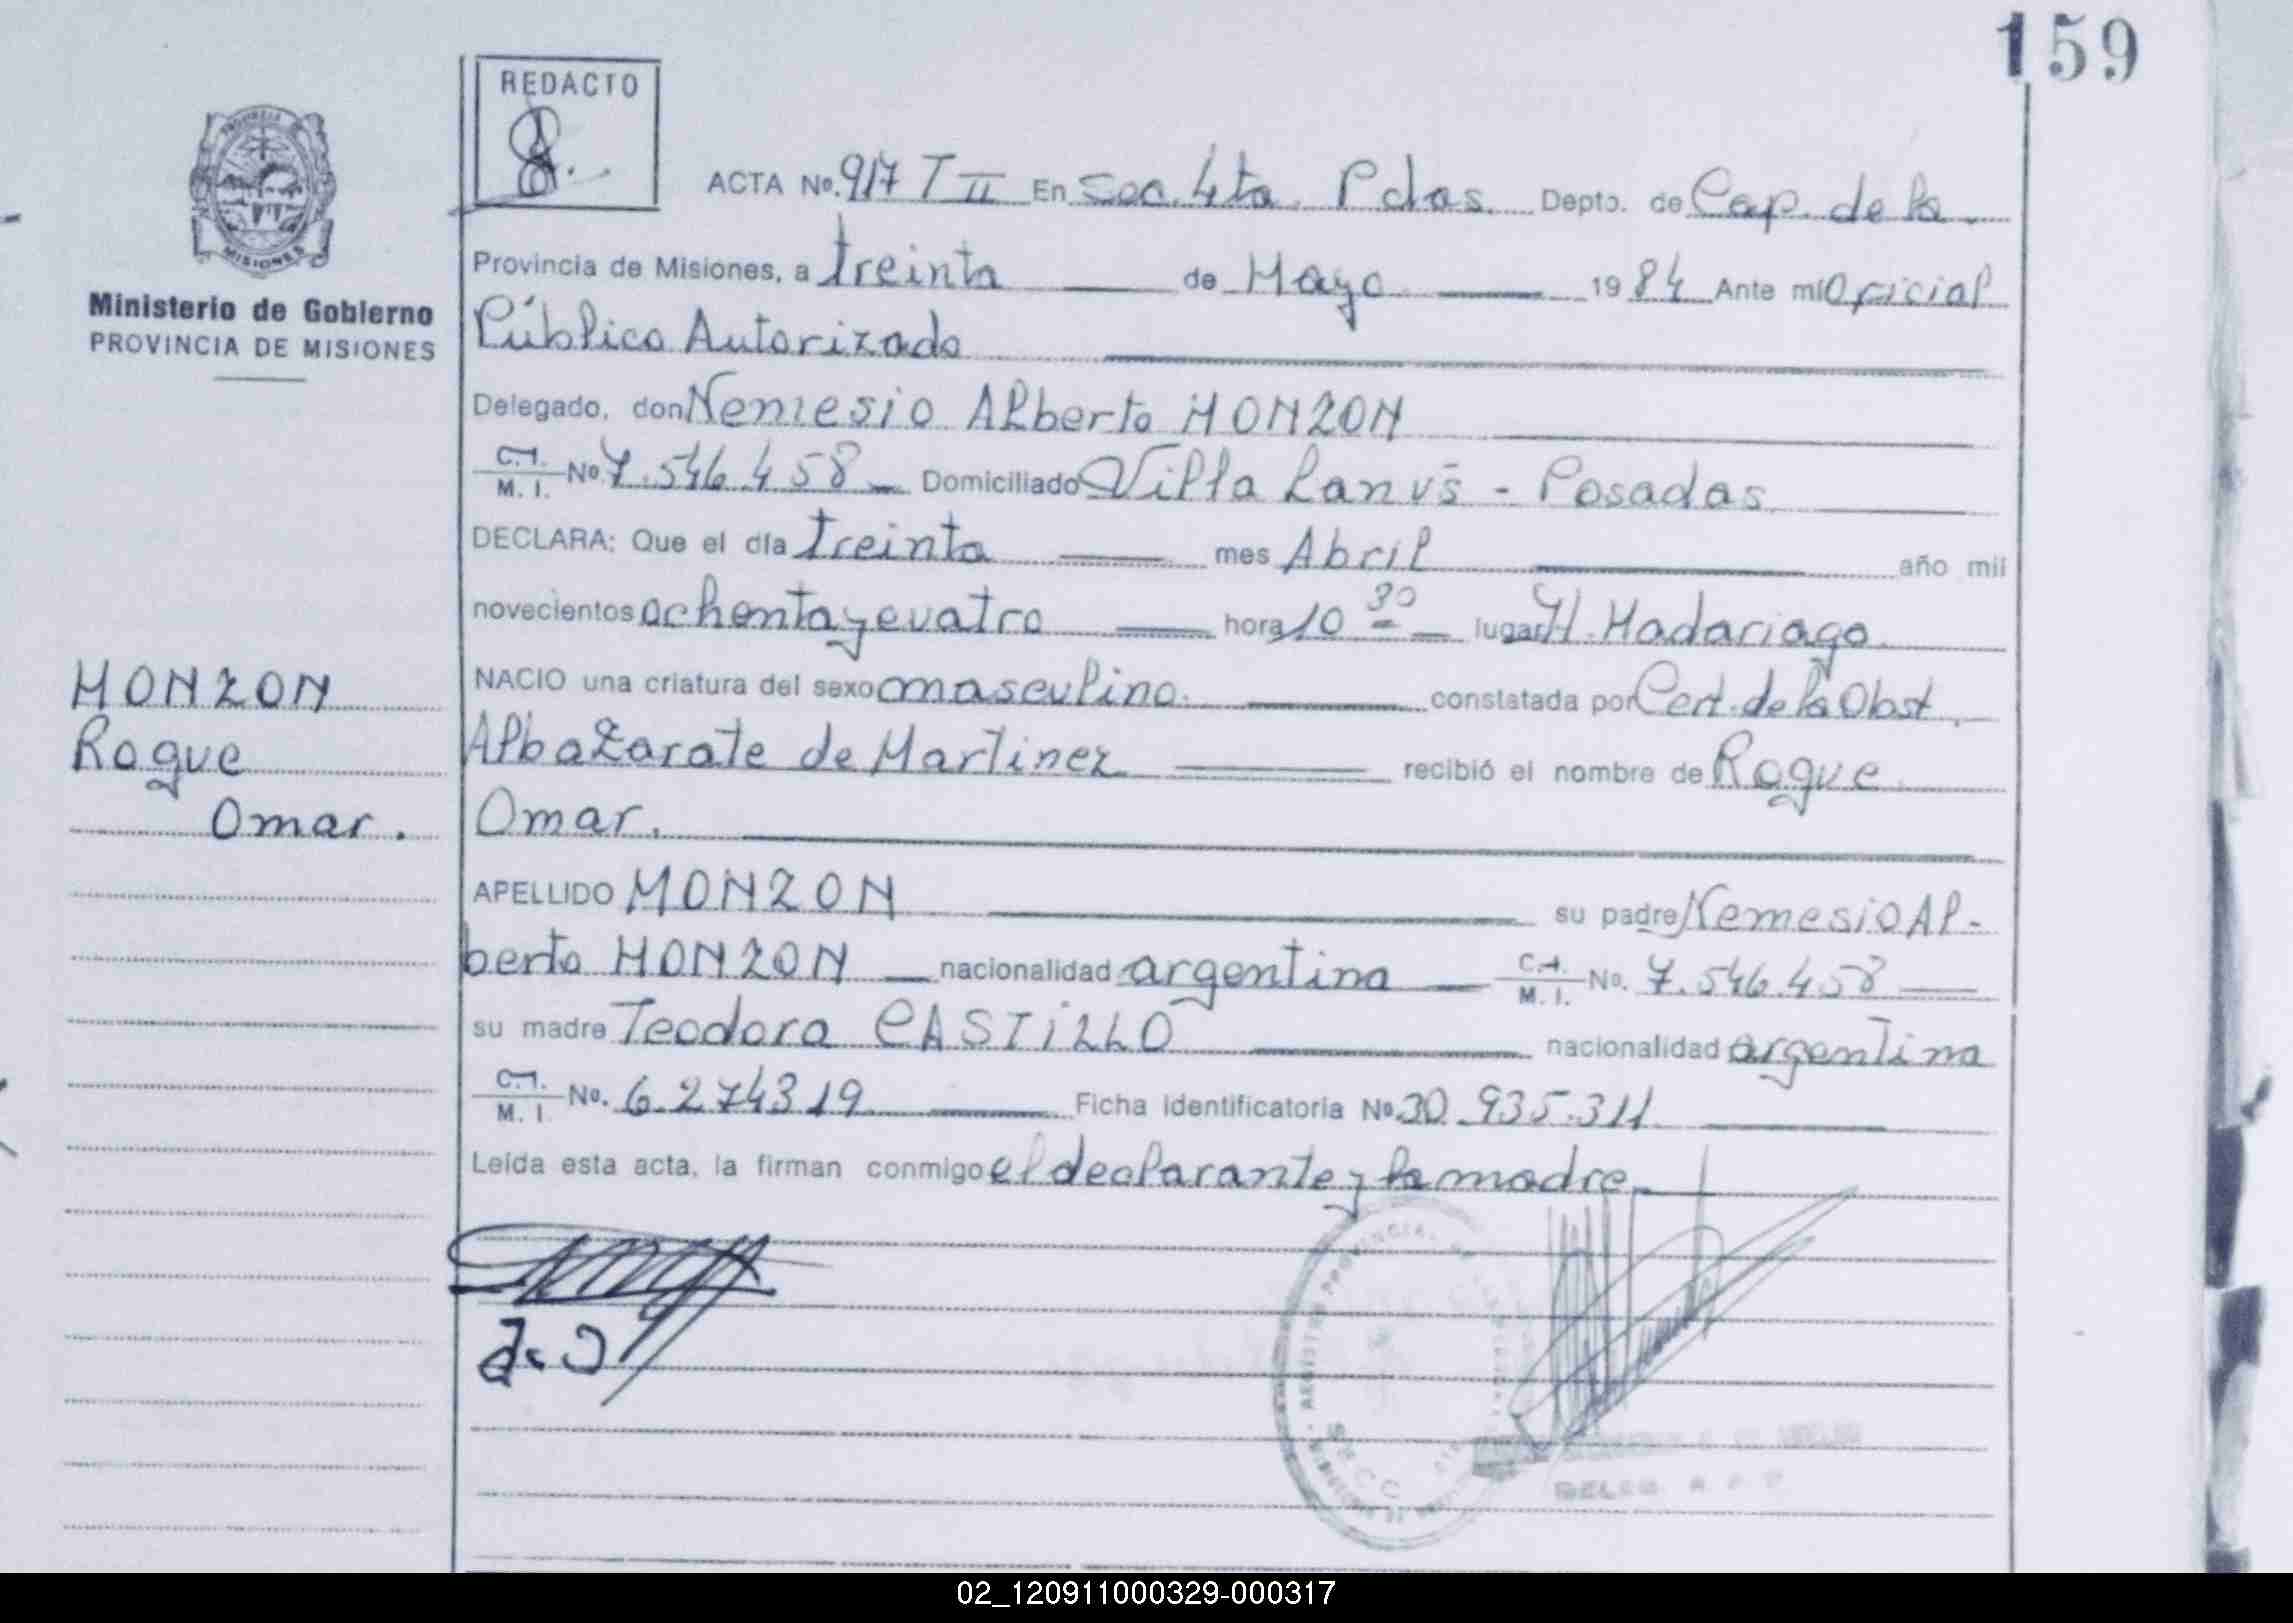 159
REDACTO
ACTA No. 917 T II En Sec. 4ta. Pdas. Depto. de Cap. de la
Provincia de Misiones, a treinta de Mayo 1984 Ante mí Oficial
Público Autorizado
Delegado, don Nemesio Alberto MONZON
C.I. M. I. No 7.546.458 Domiciliado Villa Lanús - Posadas
DECLARA: Que el día treinta mes Abril año mil
novecientos ochenta y cuatro hora 10 30 lugar H. Madariaga
NACIO una criatura del sexo masculino. constatada por Cert. de la Obst.
Alba Zarate de Martinez recibió el nombre de Roque
Omar.
APELLIDO MONZON su padre Nemesio Al-
berto MONZON nacionalidad argentina C.I. M. I. No. 7.546.458
su madre Teodora CASTILLO nacionalidad argentina
C.I. M. I. No. 6.274319 Ficha identificatoria No 30.935.311
Leída esta acta, la firman conmigo el declarante y la madre
PROVINCIA DE MISIONES
Ministerio de Gobierno
PROVINCIA DE MISIONES
MONZON
Roque
Omar.
02_120911000329-000317